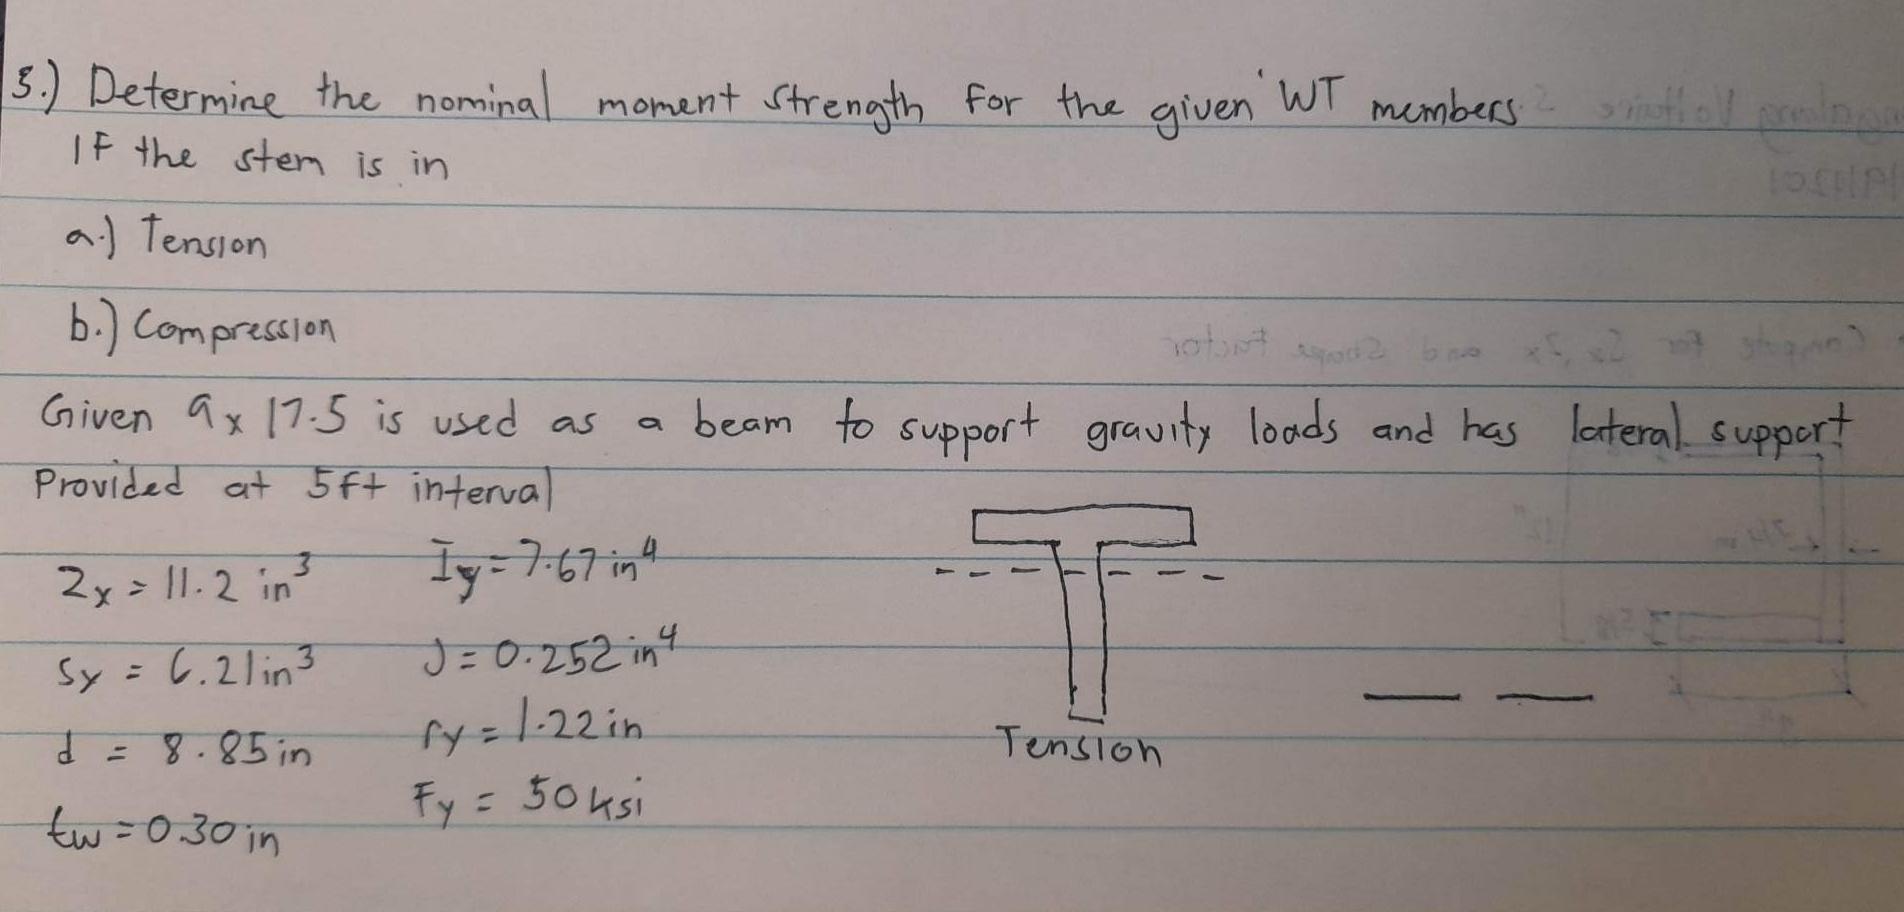 3.) Determine the nominal moment strength for the given WT members
IF the stem is in
a.) Tension
b.) Compression
Given 9x 17.5 is used as a beam to support gravity loads and has lateral support
Provided at 5ft interval
Zx = 11.2 in³ Iy = 7.67 in⁴
Sx = 6.21 in³ J = 0.252 in⁴
d = 8.85 in ry = 1.22 in
tw = 0.30 in Fy = 50 ksi
Tension
Compute for Sx, Zx and Shape Factor